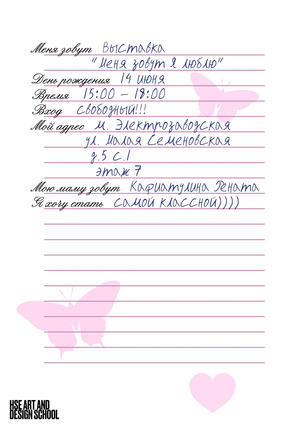 Меня зовут Выставка
"Меня зовут Я люблю"
День рождения 14 июня
Время 15:00 - 18:00
Вход свободный!!!
Мой адрес м. Электрозаводская
ул. Малая Семеновская
д.5 с.1
этаж 7
Мою маму зовут Кафиатулина Рената
Я хочу стать самой классной))))
HSE ART AND
DESIGN SCHOOL